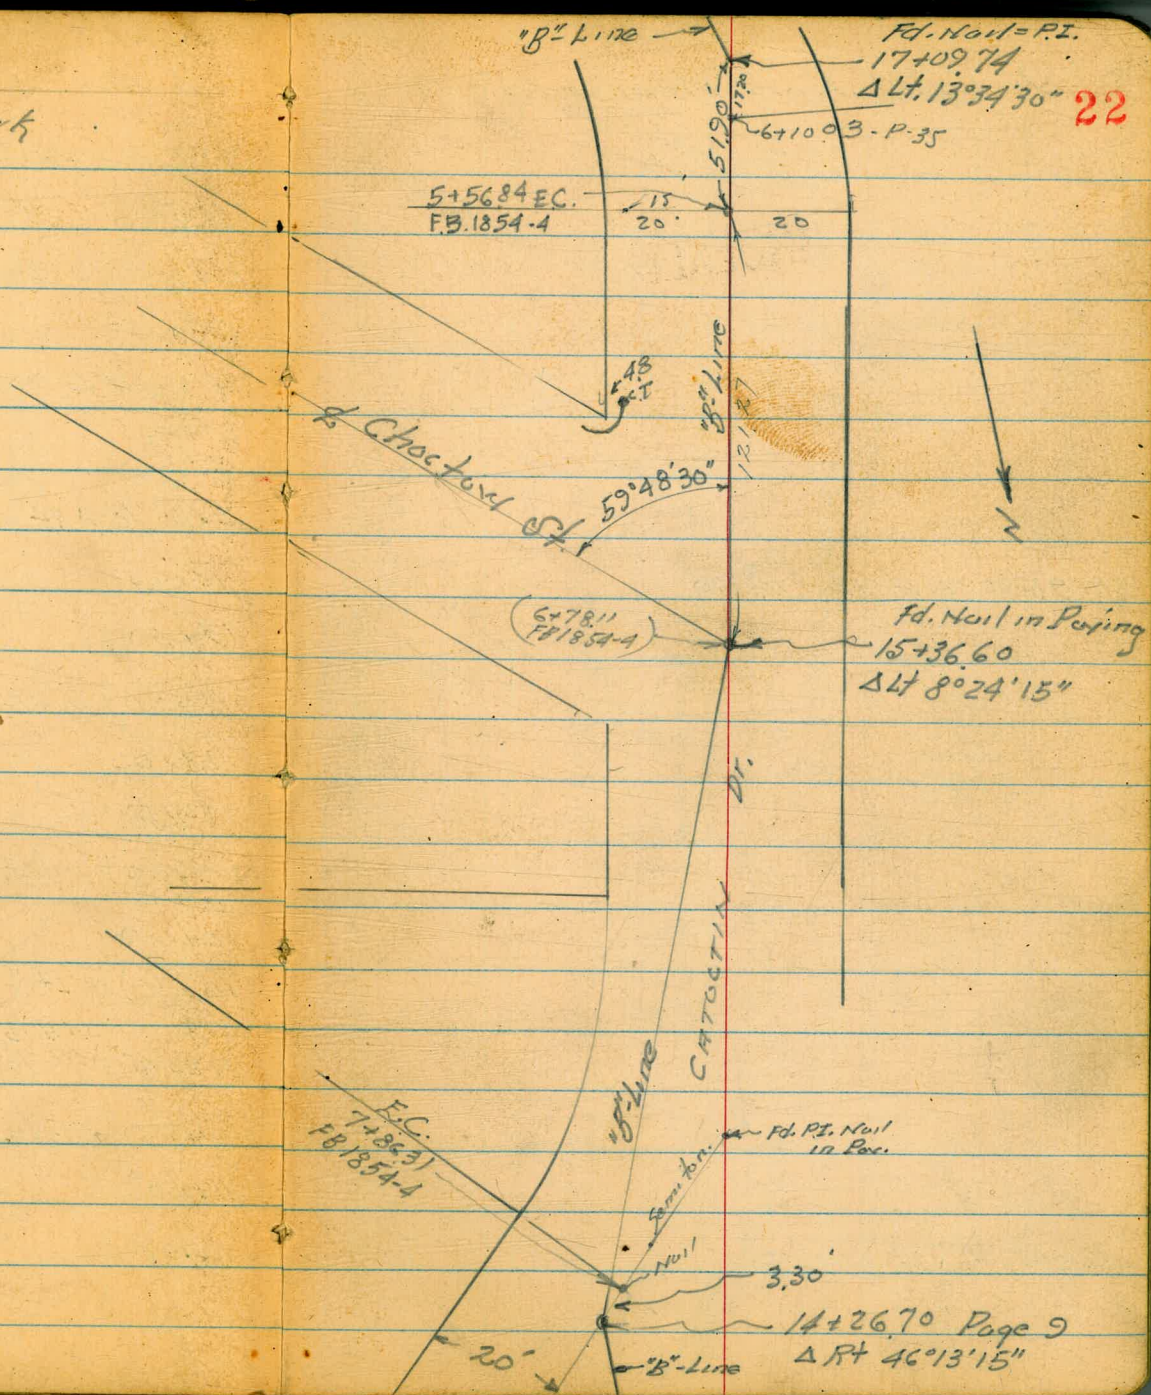 "B"-Line
Fd. Nail = P.I.
17+09.74
Δ Lt. 13°34'30"
22
51.90'
17.20
6+10.03 - P-35
5+56.84 E.C.
F.B. 1854-4
15
20'
20
"B"-Line
121.27
4.8
C.I.
℄ Choctaw St.
59°48'30"
N
(6+78.11
FB 1854-4)
Fd. Nail in Paving
15+36.60
Δ Lt 8°24'15"
CATOCTIN Dr.
"B"-Line
E.C.
7+86.31
FB 1854-4
Fd. P.I. Nail
in Pav.
Semi tan.
Nail
3.30'
14+26.70 Page 9
Δ Rt 46°13'15"
20'
"B"-Line